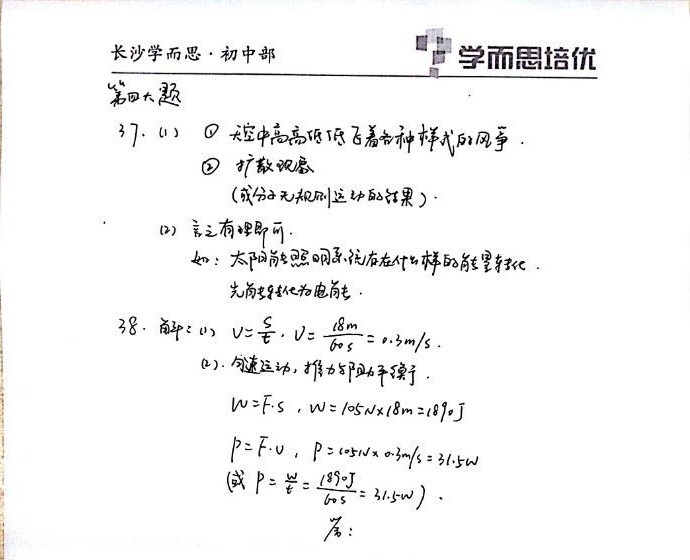 长沙学而思·初中部
学而思培优
第四大题
37. (1) ① 天空中高高低低飞着各种样式的风筝.
② 扩散现象
(或分子无规则运动的结果).
(2) 言之有理即可.
如: 太阳能照明系统存在什么样的能量转化.
光能转化为电能.
38. 解: (1) V=S/t, V=18m/60s=0.3m/s.
(2). 匀速运动, 推力与阻力平衡.
W=F·S, W=105N×18m=1890J
P=F·V, P=105N×0.3m/s=31.5W
(或 P=W/t=1890J/60s=31.5W).
答: